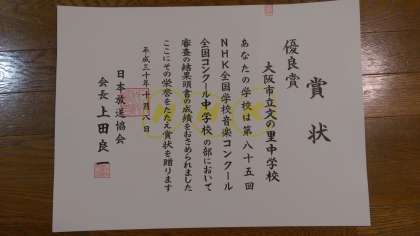 賞状
優良賞
大阪市立文の里中学校
あなたの学校は第八十五回
NHK全国学校音楽コンクール
全国コンクール中学校の部において
審査の結果頭書の成績をおさめられました
ここにその栄誉をたたえ賞状を贈ります
平成三十年十月八日
日本放送協会
会長 上田良一
NHK